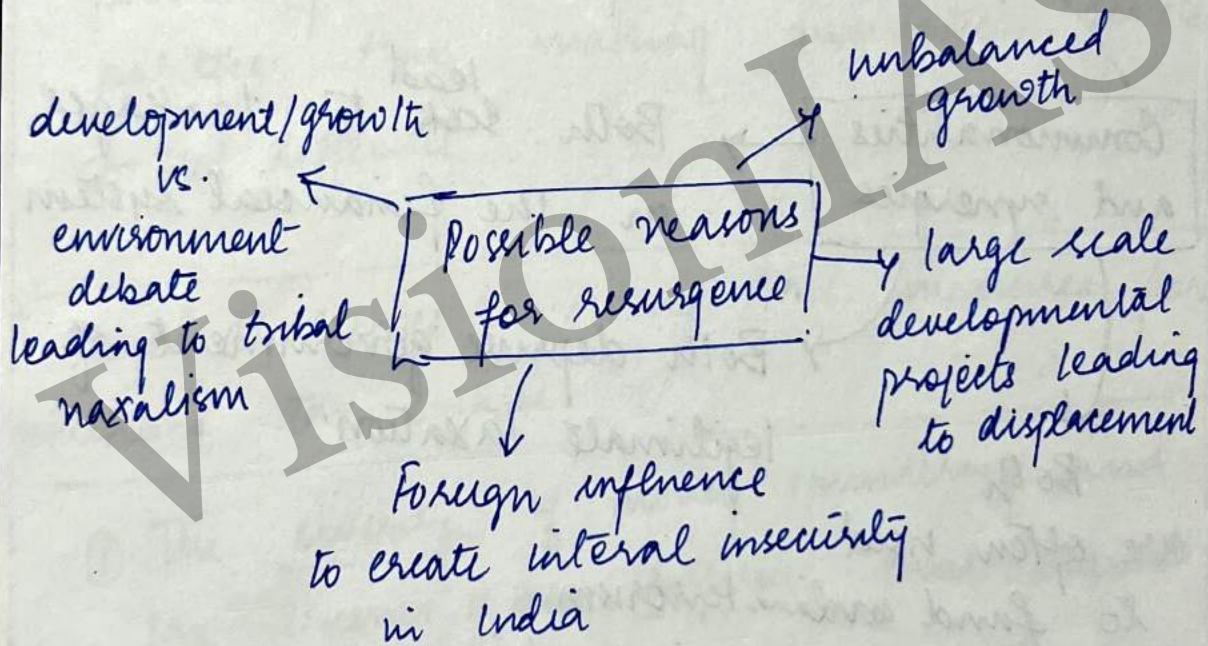 unbalanced
growth
development/growth
vs.
environment
debate
leading to tribal
naxalism
Possible reasons
for resurgence
large scale
developmental
projects leading
to displacement
Foreign influence
to create interal insecurity
in India
VisionIAS